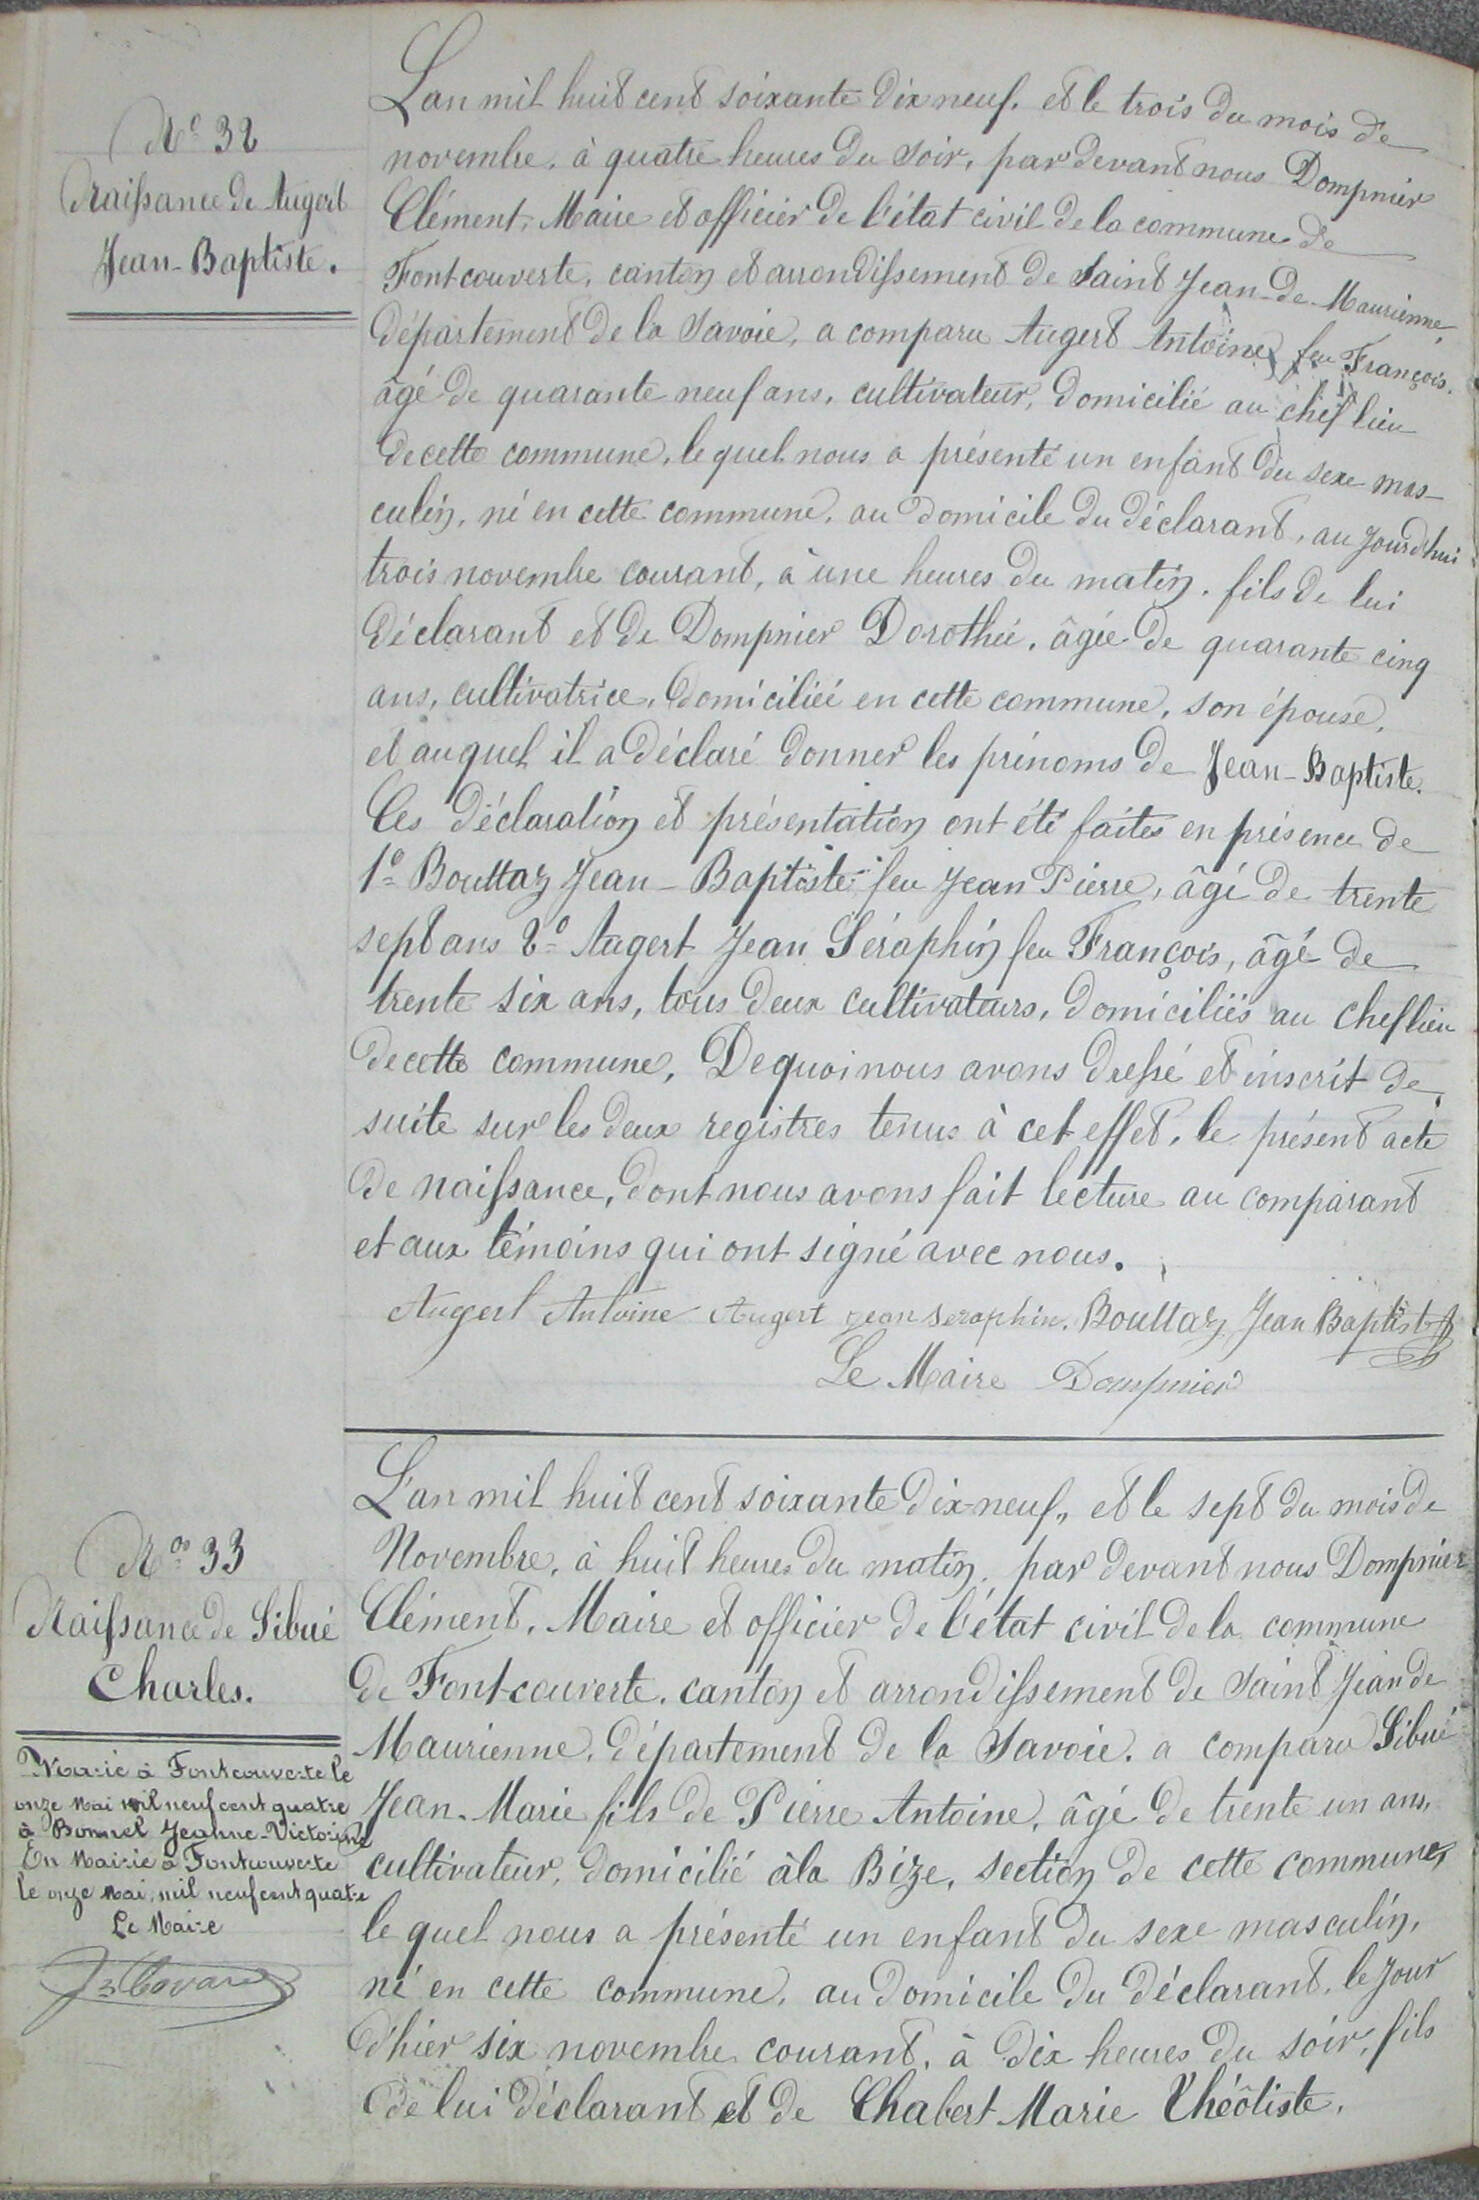 N° 32
Naissance de Augert
Jean-Baptiste.
L'an mil huit cent soixante dix neuf. et le trois du mois de
novembre, à quatre heures du soir, par devant nous Dompnier
Clément, Maire et officier de l'état civil de la commune de
Fontcouverte, canton et arrondissement de Saint Jean-de-Maurienne,
département de la Savoie, a comparu Augert Antoine feu François.
âgé de quarante neuf ans, cultivateur, domicilié au chef lieu
de cette commune, le quel nous a présenté un enfant du sexe mas-
culin, né en cette commune, au domicile du déclarant, au jourd'hui
trois novembre courant, à une heures du matin. fils de lui
déclarant et de Dompnier Dorothée, âgée de quarante cinq
ans, cultivatrice, domiciliée en cette commune, son épouse,
et auquel il a déclaré donner les prénoms de Jean-Baptiste.
Ces déclaration et présentation ont été faites en présence de
1° Bouttaz Jean-Baptiste feu Jean Pierre, âgé de trente
sept ans 2° Augert Jean Séraphin feu François, âgé de
trente six ans, tous deux cultivateurs, domiciliés au chef lieu
de cette commune, De quoi nous avons dressé et inscrit de
suite sur les deux registres tenus à cet effet, le présent acte
de naissance, dont nous avons fait lecture au comparant
et aux témoins qui ont signé avec nous.
Augert Antoine Augert jean seraphin. Bouttaz Jean Baptiste
Le Maire Dompnier
N° 33
Naissance de Sibué
Charles.
Marié à Fontcouverte le
onze Mai mil neuf cent quatre
à Bonnel Jeanne-Victorine
En Mairie à Fontcouverte
le onze Mai, mil neuf cent quatre
Le Maire
L'an mil huit cent soixante dix-neuf, et le sept du mois de
Novembre, à huit heures du matin, par devant nous Dompnier
Clément, Maire et officier de l'état civil de la commune
de Fontcouverte, canton et arrondissement de Saint Jean de
Maurienne, département de la Savoie. a comparu Sibué
Jean-Marie fils de Pierre Antoine, âgé de trente un ans,
cultivateur, domicilié à la Bize, section de cette commune,
le quel nous a présenté un enfant du sexe masculin,
né en cette commune, au domicile du déclarant, le jour
d'hier six novembre courant, à dix heures du soir, fils
de lui déclarant et de Chabert Marie Théotiste,